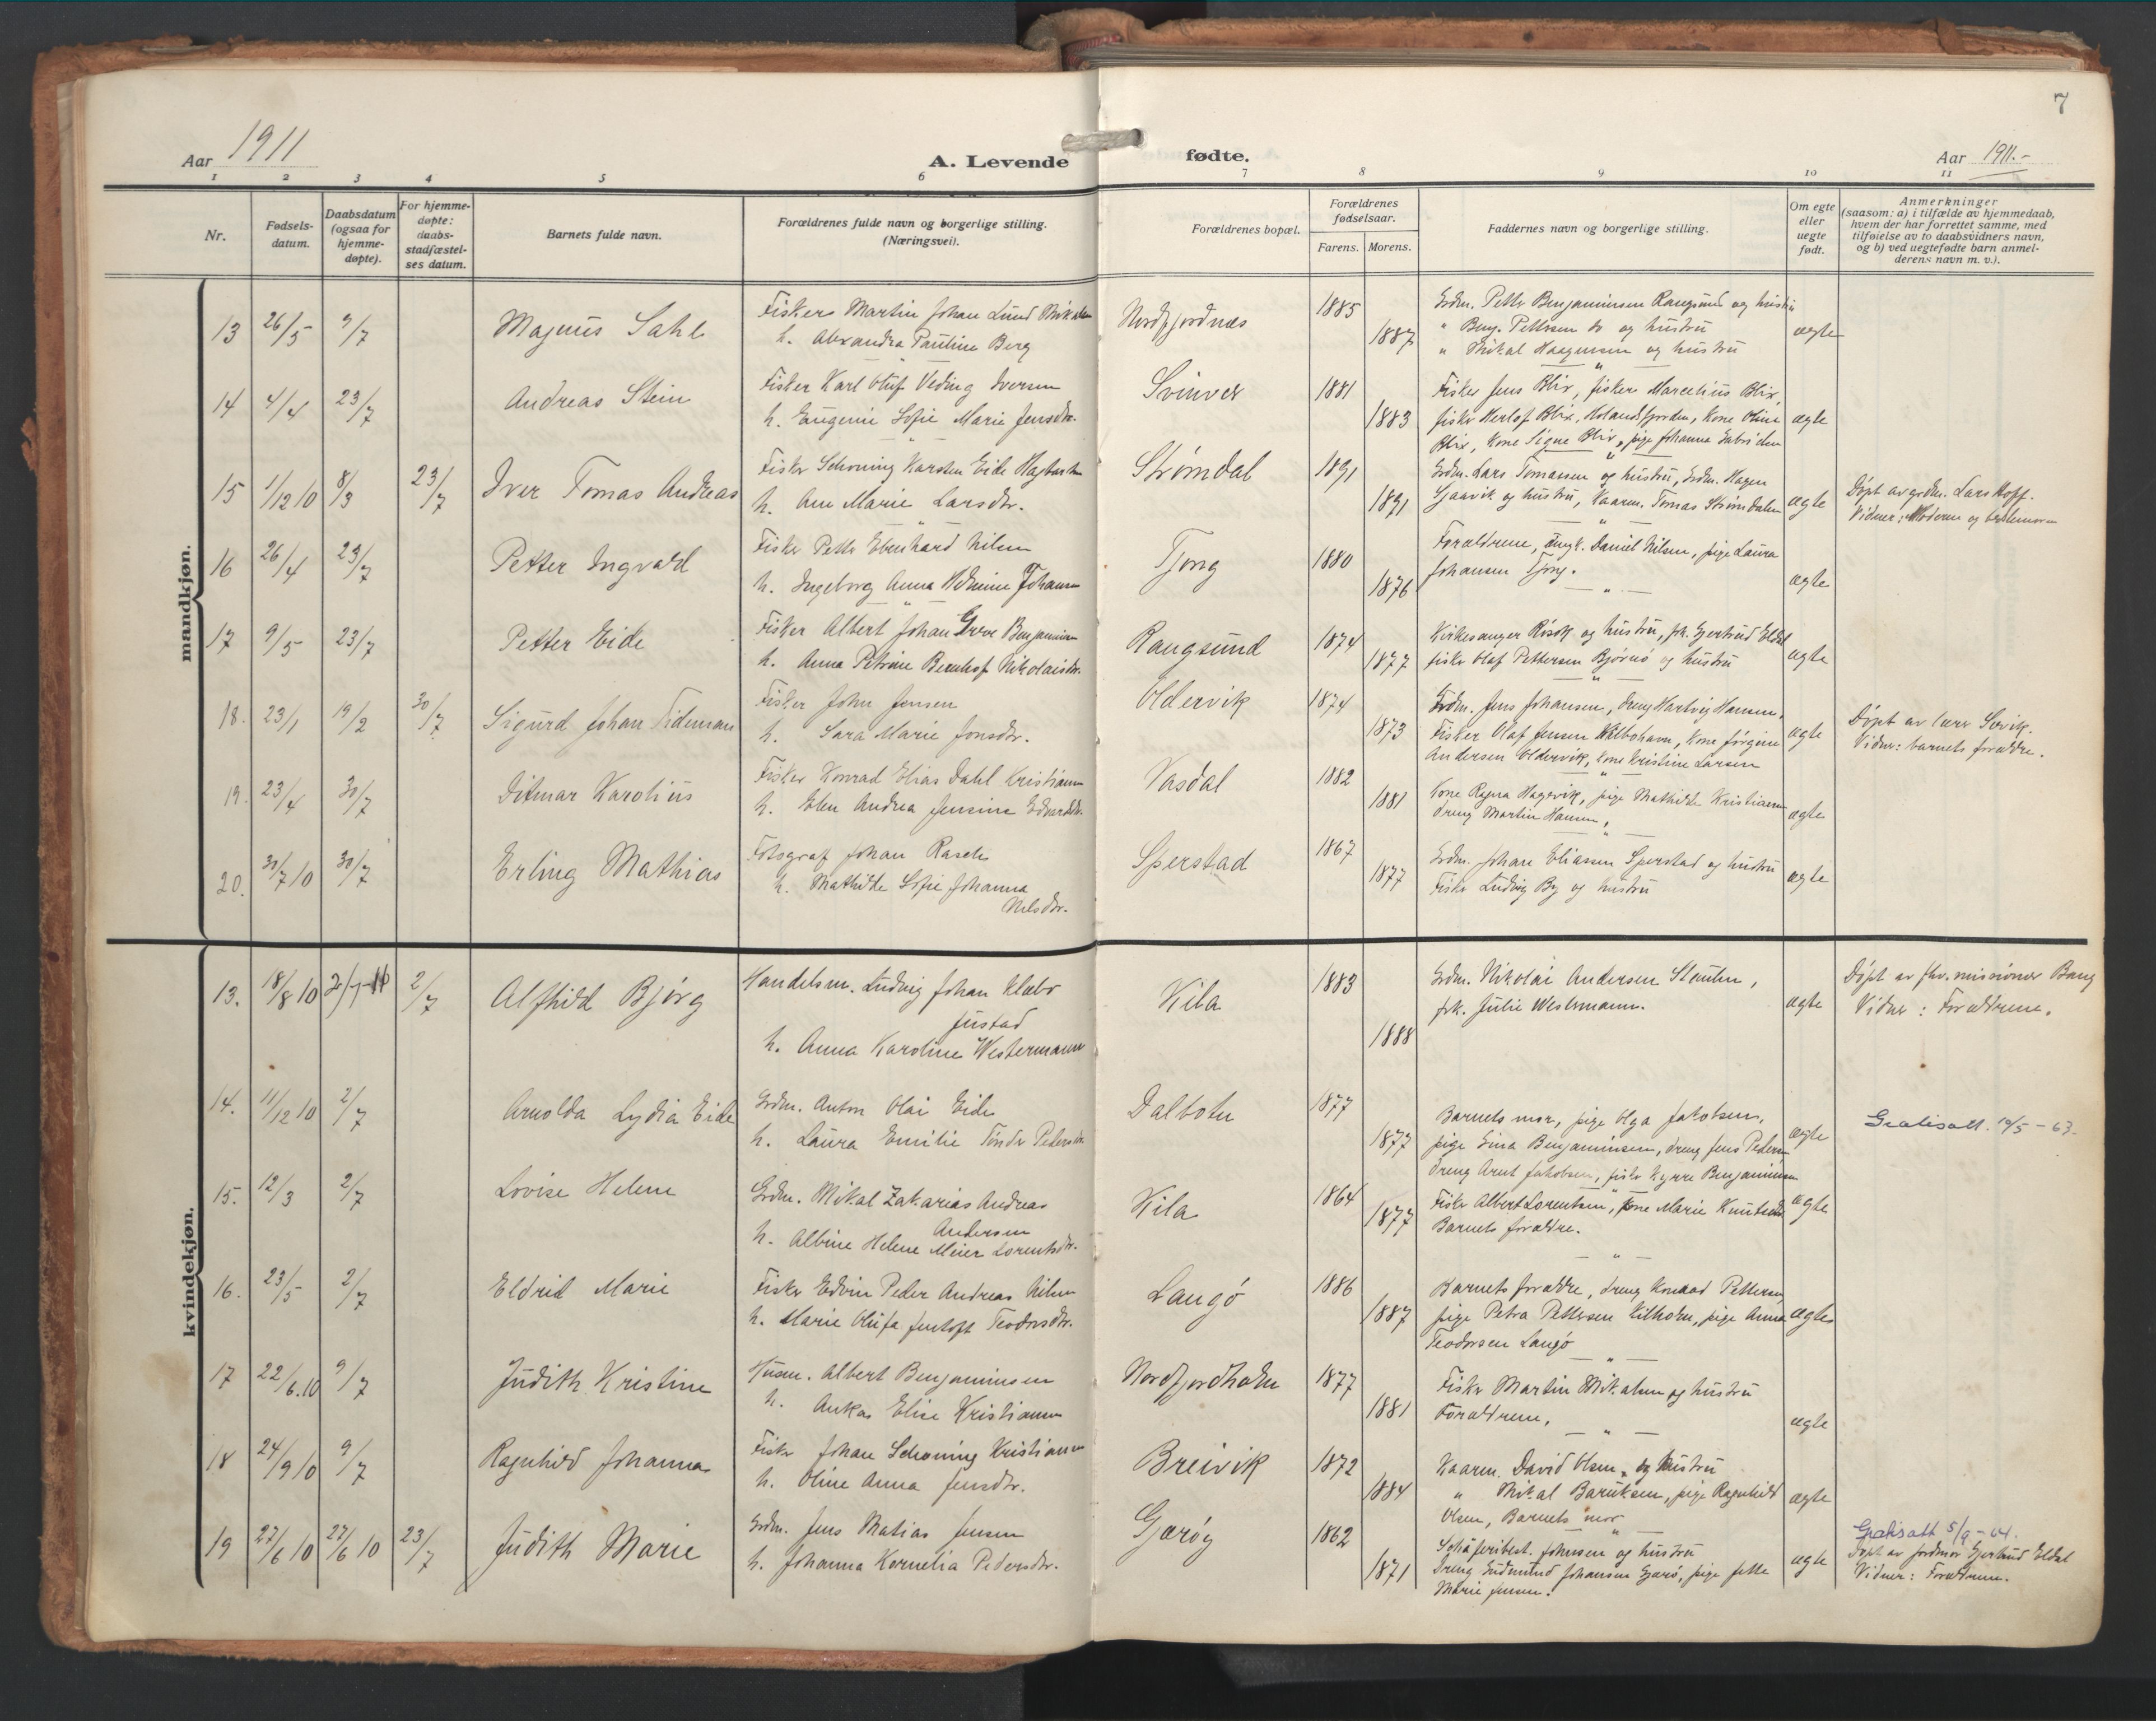 7
Aar 1911
A. Levende
fødte.
Aar 1911.-
1 2 3 4 5 6 7 8 9 10 11
Nr.
Fødsels-
datum.
Daabsdatum
(ogsaa for
hjemme-
døpte).
For hjemme-
døpte:
daabs-
stadfæstel-
ses datum.
Barnets fulde navn.
Forældrenes fulde navn og borgerlige stilling.
(Næringsvei).
Forældrenes bopæl.
Forældrenes
fødselsaar.
Farens. Morens.
Faddernes navn og borgerlige stilling.
Om egte
eller
uegte
født.
Anmerkninger
(saasom: a) i tilfælde av hjemmedaab,
hvem der har forrettet samme, med
tilføielse av to daabsvidners navn,
og b) ved uegtefødte barn anmel-
derens navn m. v.).
mandkjøn.
13 26/5 9/7 Magnus Dahl
Fisker Martin Johan Lund
h. Alexandra Pauline Berg
Nordfjordnes 1885 1887
Grdm. Petter Benjaminsen Rangsund og hustru
" Benj. Pettersen do og hustru
" Mikal Haagensen og hustru
ægte
14 4/4 23/7 Andreas Stein
Fisker Karl Oluf Veding Iversen
h. Eugenie Sofie Marie Jensdtr.
Svinvær 1881 1883
Fisker Jens Blix, fisker Marcelius Blix,
fisker Herlof Blix, Holandsfjorden, Kone Oline
Blix, Kone Signe Blix, pige Johanna
ægte
15 1/12 10 8/3 23/7 Iver Tomas Andreas
Fisker Schøning Karsten Eide
h. Ane Marie Larsdtr.
Strømdal 1891 1891
Grdm. Lars Tomassen og hustru, Grdm. Hagen
Gjaavik og hustru, Kaarm. Tomas Strømdalen
ægte
Døpt av grdm. Lars Hoff.
Vidner: Moderen og bestemoren
16 26/4 23/7 Petter Ingvald
Fisker Petter Eberhard Nilsen
h. Ingeborg Anna
Tjong 1880 1876
Forældrene, ungk. Daniel Nilsen, pige Laura
Johansen Tjong.
ægte
17 9/5 23/7 Petter Eide
Fisker Albert Johan Greve Benjaminsen
h. Anna Petrine Bernhof Nikolaisdtr.
Rangsund 1874 1877
Kirkesanger Risøk og hustru, frk. Gjertrud Eldal
fisker Olaf Pettersen Bjørnø og hustru
ægte
18. 23/1 19/2 30/7 Sigurd Johan Tideman
Fisker John Jensen
h. Sara Marie Jonsdtr.
Oldervik 1874 1873
Grdm. Jens Johansen, dreng Hartvig Hansen,
Fisker Olaf Jensen Kilbohavn, Kone Jørgine
Andersen Oldervik, Kone Kristine Larsen
ægte
Døpt av lærer Sørvik.
Vidner: barnets forældre.
19. 23/4 30/7 Ditmar Karolius
Fisker Konrad Elias Dahl Kristiansen
h. Elen Andrea Jensine Edvardsdtr.
Vasdal 1882 1881
Kone Ragna Hagevik, pige Mathilde Kristiansen
dreng Martin Hansen,
ægte
20. 30/7 10 30/7 Erling Mathias
Fotograf Johan Rasch
h. Mathilde Sofie Johanna
Nilsdtr.
Sperstad 1867 1877
Grdm. Johan Eliassen Sperstad og hustru
Fisker Ludvig By og hustru
ægte
kvindekjøn.
13. 18/8 10 2/7 Alfhild Bjørg
Handelsm. Ludvig Johan Klæbo
Justad
h. Anna Karoline Westermann
Kila 1883 1888
Grdm. Nikolai Andersen Stenten,
frk. Julie Westermann.
ægte
Døpt av fhv. missionær Bang
Vidner: Forældrene.
14. 11/12 10 2/7 Arnolda Lydia Eide
Grdm. Anton Olai Eide
h. Laura Emilie Tønder Pedersdtr.
Dalboten 1877 1877
Barnets mor, pige Olga Jakobsen,
pige Gina Benjaminsen, dreng Jens Pedersen
dreng Arnt Jakobsen, fisker Kyrre Benjaminsen
ægte
Gratisatt. 10/5 - 63.
15. 12/3 2/7 Lovise Helene
Grdm. Mikal Zakarias Andreas
Andersen
h. Albine Helene Meier Lorentsdtr.
Kila 1864 1877
Fisker Albert Lorentsen, Kone Marie Knutsen
Barnets forældre.
ægte
16. 23/5 2/7 Eldrid Marie
Fisker Edvin Peder Andreas Nilsen
h. Marie Olufa Jentoft Teodorsdtr.
Langø 1886 1887
Barnets forældre, dreng Konrad Pettersen
pige Petra Pettersen Lilholm, pige Anna
Teodorsen Langø
ægte
17 22/6.10 9/7 Judith Kristine
Husm. Albert Benjaminsen
h. Elise Kristiansen
Nordfjordholm 1877 1881
Fisker Martin Mikalsen og hustru
Forældrene.
ægte
18 24/9 10 9/7 Ragnhild Johanna
Fisker Johan Schøning Kristiansen
h. Oline Anna Jensdtr.
Breivik 1872 1884
Kaarm. David Olsen og hustru
" Mikal Baruksen, pige Ragnhild
Olsen, Barnets mor
ægte
19 27/6 10 27/6 10 23/7 Judith Marie
Grdm. Jens Matias Jensen
h. Johanna Kornelia Pedersdtr.
Gjærøy 1862 1871
Johnsen og hustru
Dreng Gudmund Johansen Gjærø, pige Jette
Marie Jensen.
ægte
Gratisatt 5/9 - 64.
Døpt av jordmor Gjertrud Eldal
Vidner: Forældrene.